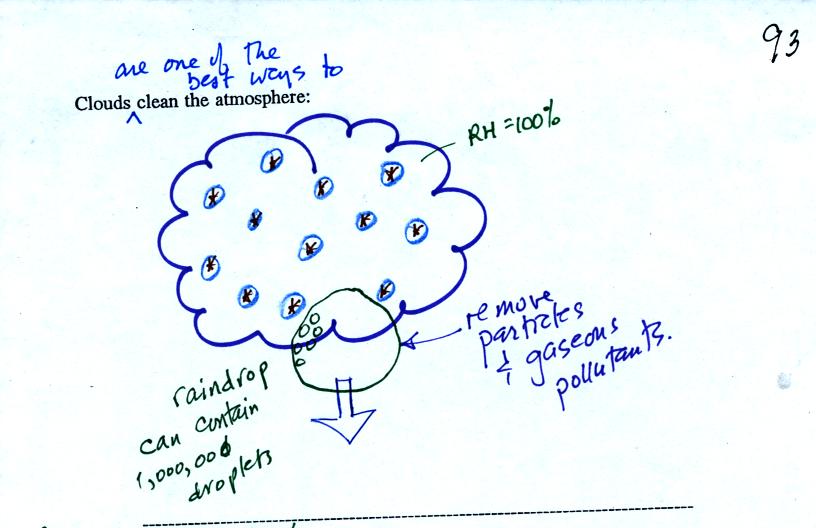 93
are one of the
best ways to
Clouds clean the atmosphere:
RH = 100%
remove
particles
& gaseous
pollutants.
raindrop
can contain
1,000,000
droplets